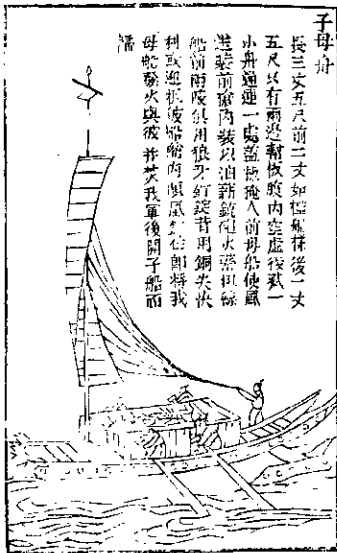 子母舟
長三丈五尺前二丈如艦船樣後一丈
五尺只有兩邊幫板腹內空虛後藏一
小舟通連一處蓋板掩人前母船使風
進裝前艙內裝以油薪銃砲火藥
船前兩陵俱用狼牙釘錠皆用銅尖快
利或迎抵彼船艙內順風即將我
母船發火與彼並焚我軍後開子船而
歸